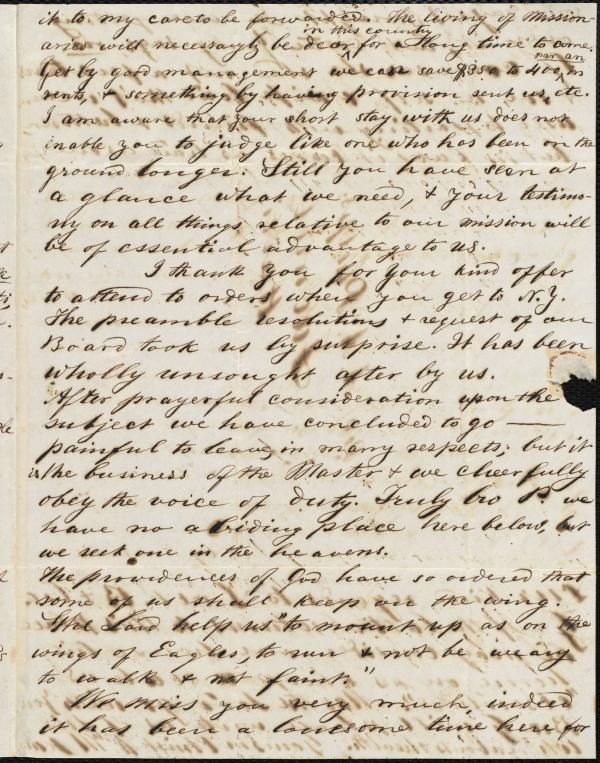 it to my care to be forwarded. The living of Mission-
aries will necessarily be dear in this country for a long time to come.
Yet by good management we can save $350 to 400, per an in
rents, & something by having provision sent us, etc.
I am aware that your short stay with us does not
inable you to judge like one who has been on the
ground longer. Still you have seen at
a glance what we need, & your testimo-
ny on all things relative to our mission will
be of essential advantage to us.
I thank you for your kind offer
to attend to orders, when you get to N.Y.
The preamble resolutions & request of our
Board took us by surprise. It has been
wholly unsought after by us.
After prayerful consideration upon the
subject we have concluded to go —
painful to leave, in many respects; but it
is the business of the Master & we cheerfully
obey the voice of duty. Truly bro P. we
have no abiding place here below, but
we seek one in the heavens.
The providences of God have so ordered that
some of us shall keep on the wing.
The Lord help us "to mount up as on the
wings of Eagles, to run & not be weary
to walk & not faint."
We miss you very much, indeed
it has been a lonesome time here for